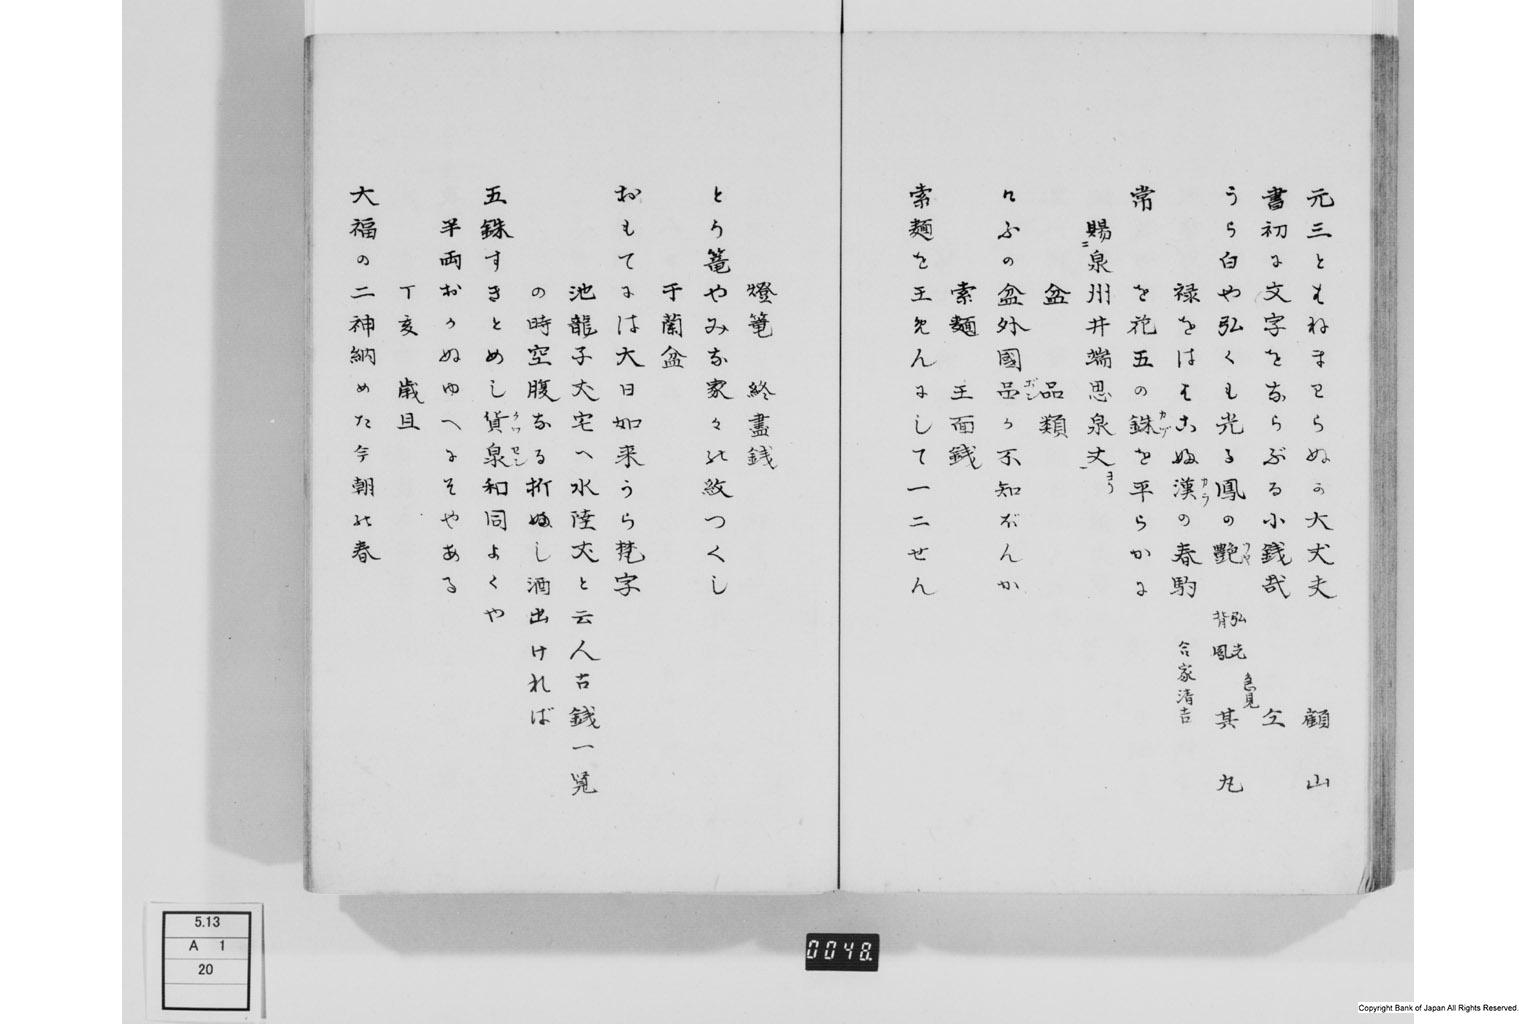 元三とはねまはらぬか大丈夫　顧山
書初に文字をならぶる小銭哉　仝
うら白や弘くも光る鳳の艶　弘光背鳳　其丸
ツヤ
急見
禄をはこぬ漢の春駒　合家清吉
カラ
常　を祀五の銖を平らかに
カブ
賜泉州井端思泉丈ヨリ
盆　品類
けふの盆外國品か不知ぼんか
ボン
索麺　王面銭
索麺を王めんにして一二せん
燈篭　終盡銭
とう篭やみな家々の紋つくし
于蘭盆
おもてには大日如来うら梵字
池龍子丈宅へ水陸丈と云人古銭一覧
の時空腹なる折ぬし酒出ければ
五銖すきとめし貨泉和同よくや
クワセン
半両おかぬゆへにそやある
丁亥　歳旦
大福の二神納めた今朝の春
5.13
A 1
20
0048.
Copyright Bank of Japan All Rights Reserved.